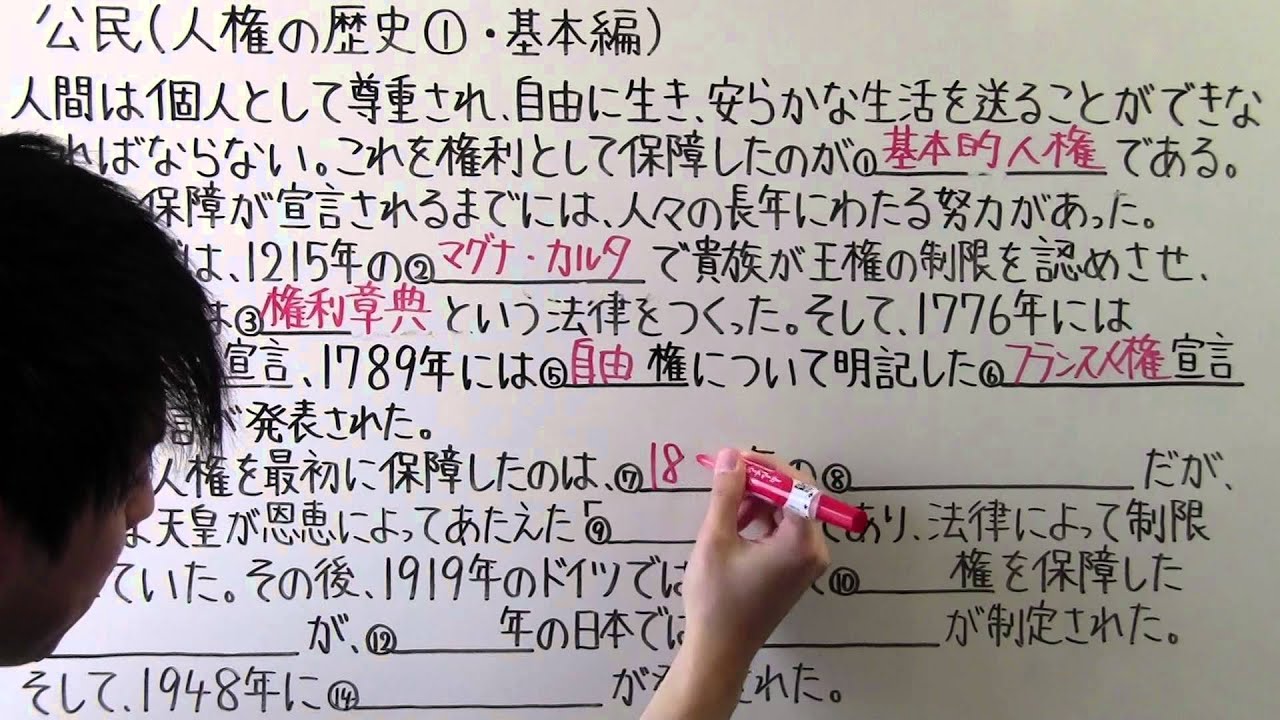 公民(人権の歴史①・基本編)
人間は個人として尊重され、自由に生き、安らかな生活を送ることができな
ればならない。これを権利として保障したのが①基本的人権である。
保障が宣言されるまでには、人々の長年にわたる努力があった。
は、1215年の②マグナ・カルタで貴族が王権の制限を認めさせ、
は③権利章典という法律をつくった。そして、1776年には
宣言、1789年には⑤自由権について明記した⑥フランス人権宣言
が発表された。
人権を最初に保障したのは、⑦18 年の⑧ だが、
は天皇が恩恵によってあたえた「⑨ あり、法律によって制限
ていた。その後、1919年のドイツでは て⑩ 権を保障した
が、⑫ 年の日本では が制定された。
そして、1948年に⑭ が された。